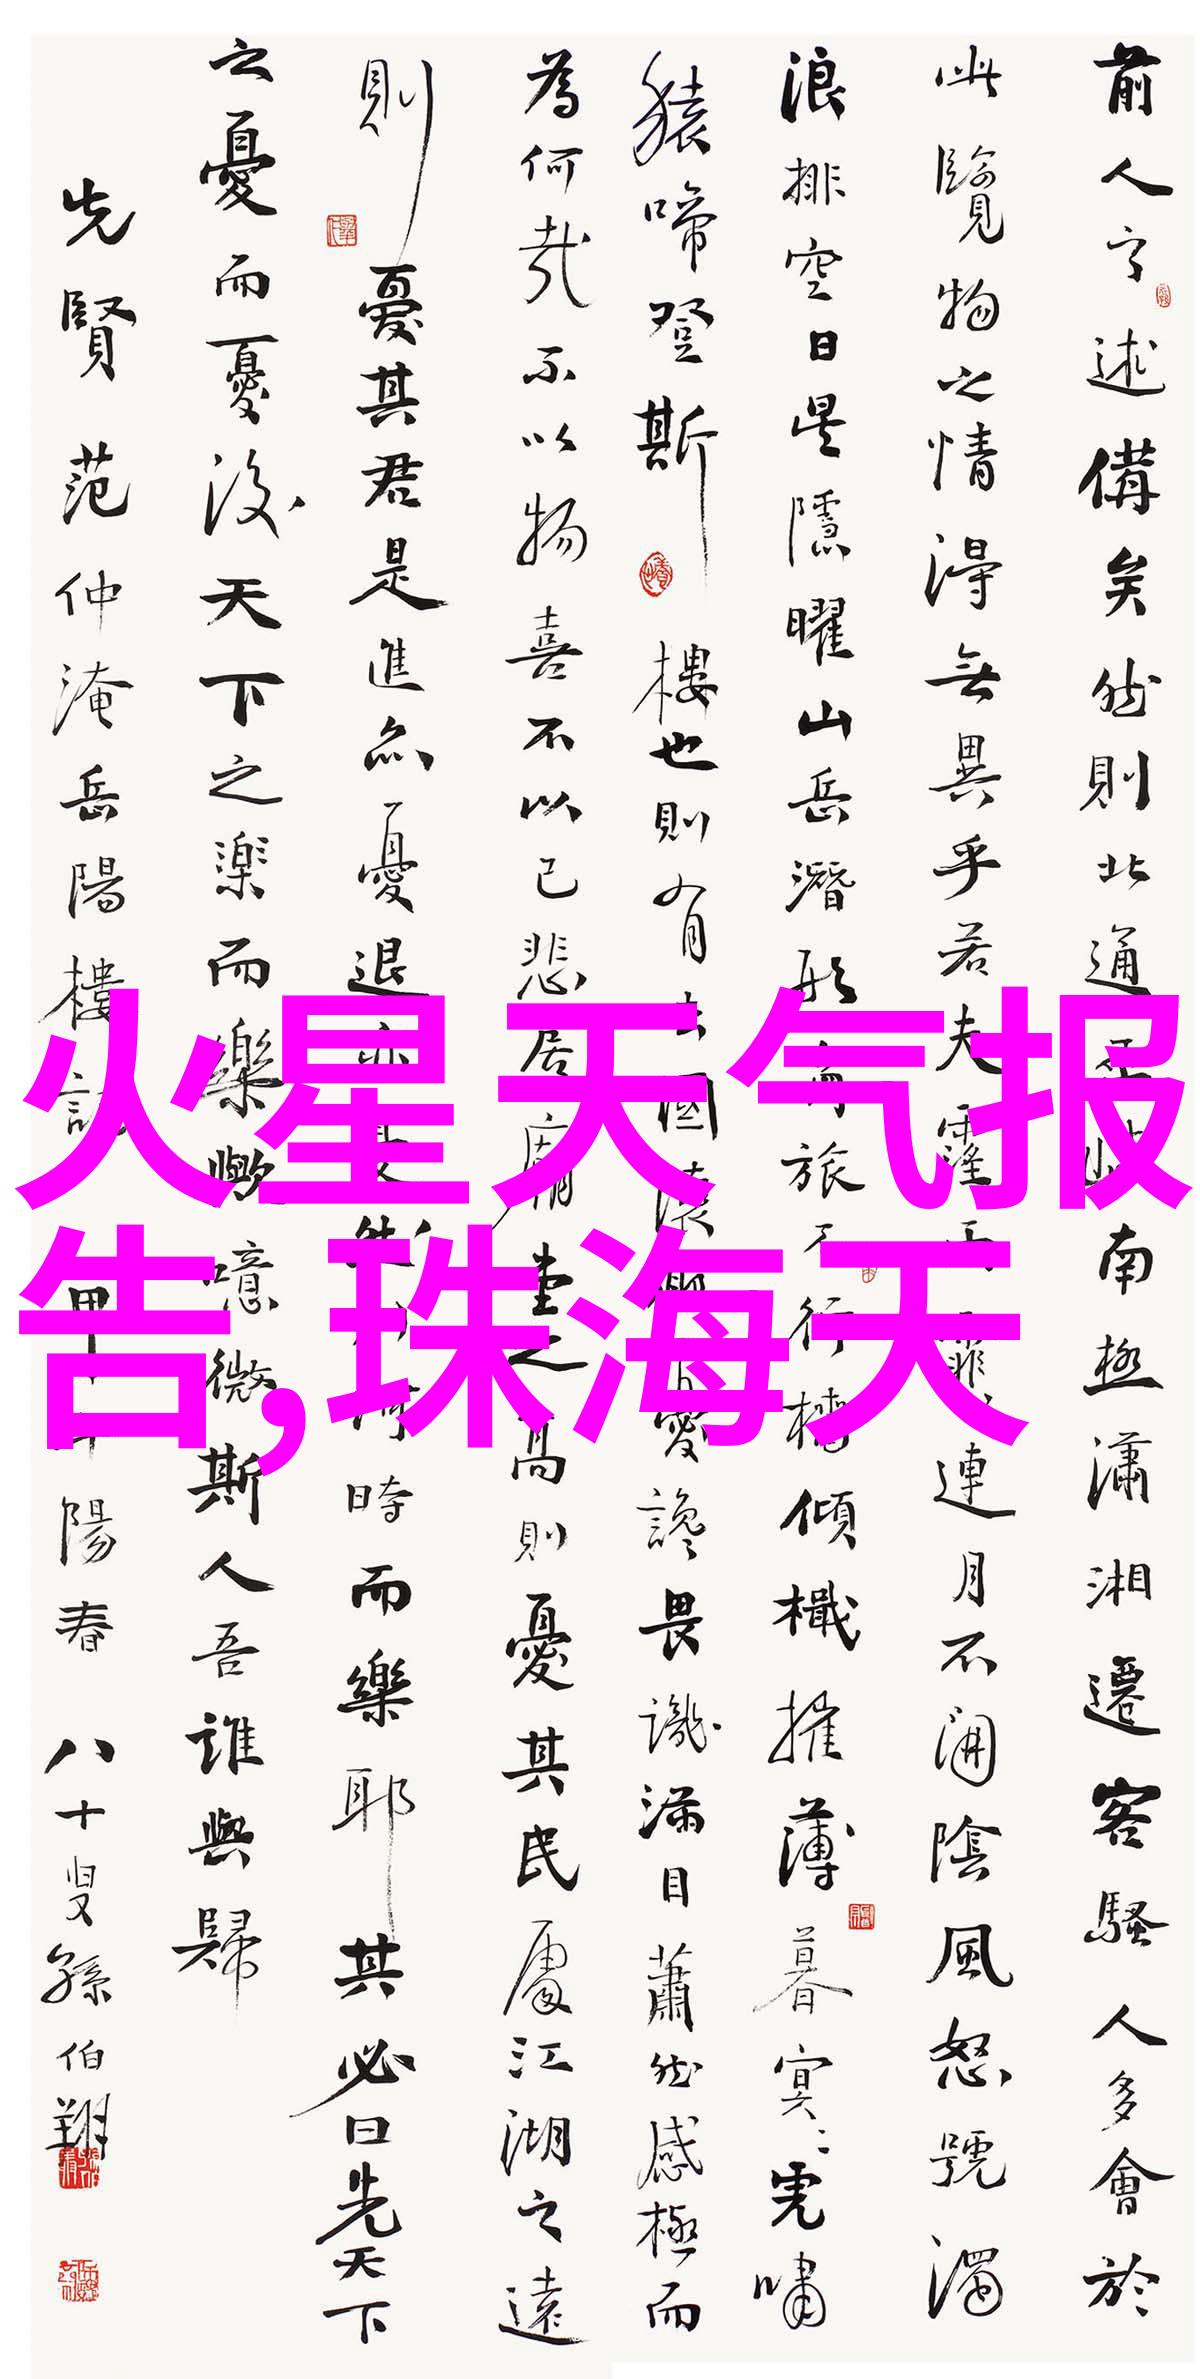 前人之述備矣然則北通巫峽南極瀟湘遷客騷人多會於
此覽物之情得無異乎若夫霪雨霏霏連月不開陰風怒號濁
浪排空日星隱曜山岳潛形商旅不行檣傾檝摧薄暮冥冥虎嘯
猿啼登斯樓也則有去國懷鄉憂讒畏譏滿目蕭然感極而
為何哉不以物喜不以己悲居廟堂之高則憂其民處江湖之遠
則憂其君是進亦憂退亦憂然則何時而樂耶其必曰先天下
之憂而憂後天下之樂而樂歟噫微斯人吾誰與歸
先賢范仲淹岳陽樓記甲午陽春八十叟孫伯翔
火星天气报
告,珠海天